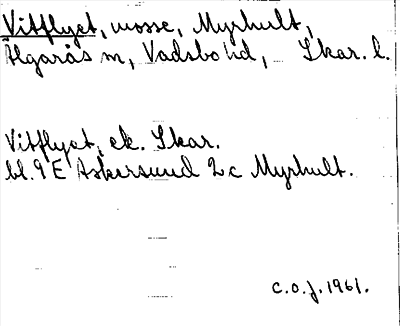 Vitflyet, mosse, Myrhult,
Älgarås sn, Vadsbo hd, Skar. l.
Vitflyet, ek. Skar.
bl. 9 E Askersund 2 c Myrhult.
C.O.J. 1961.